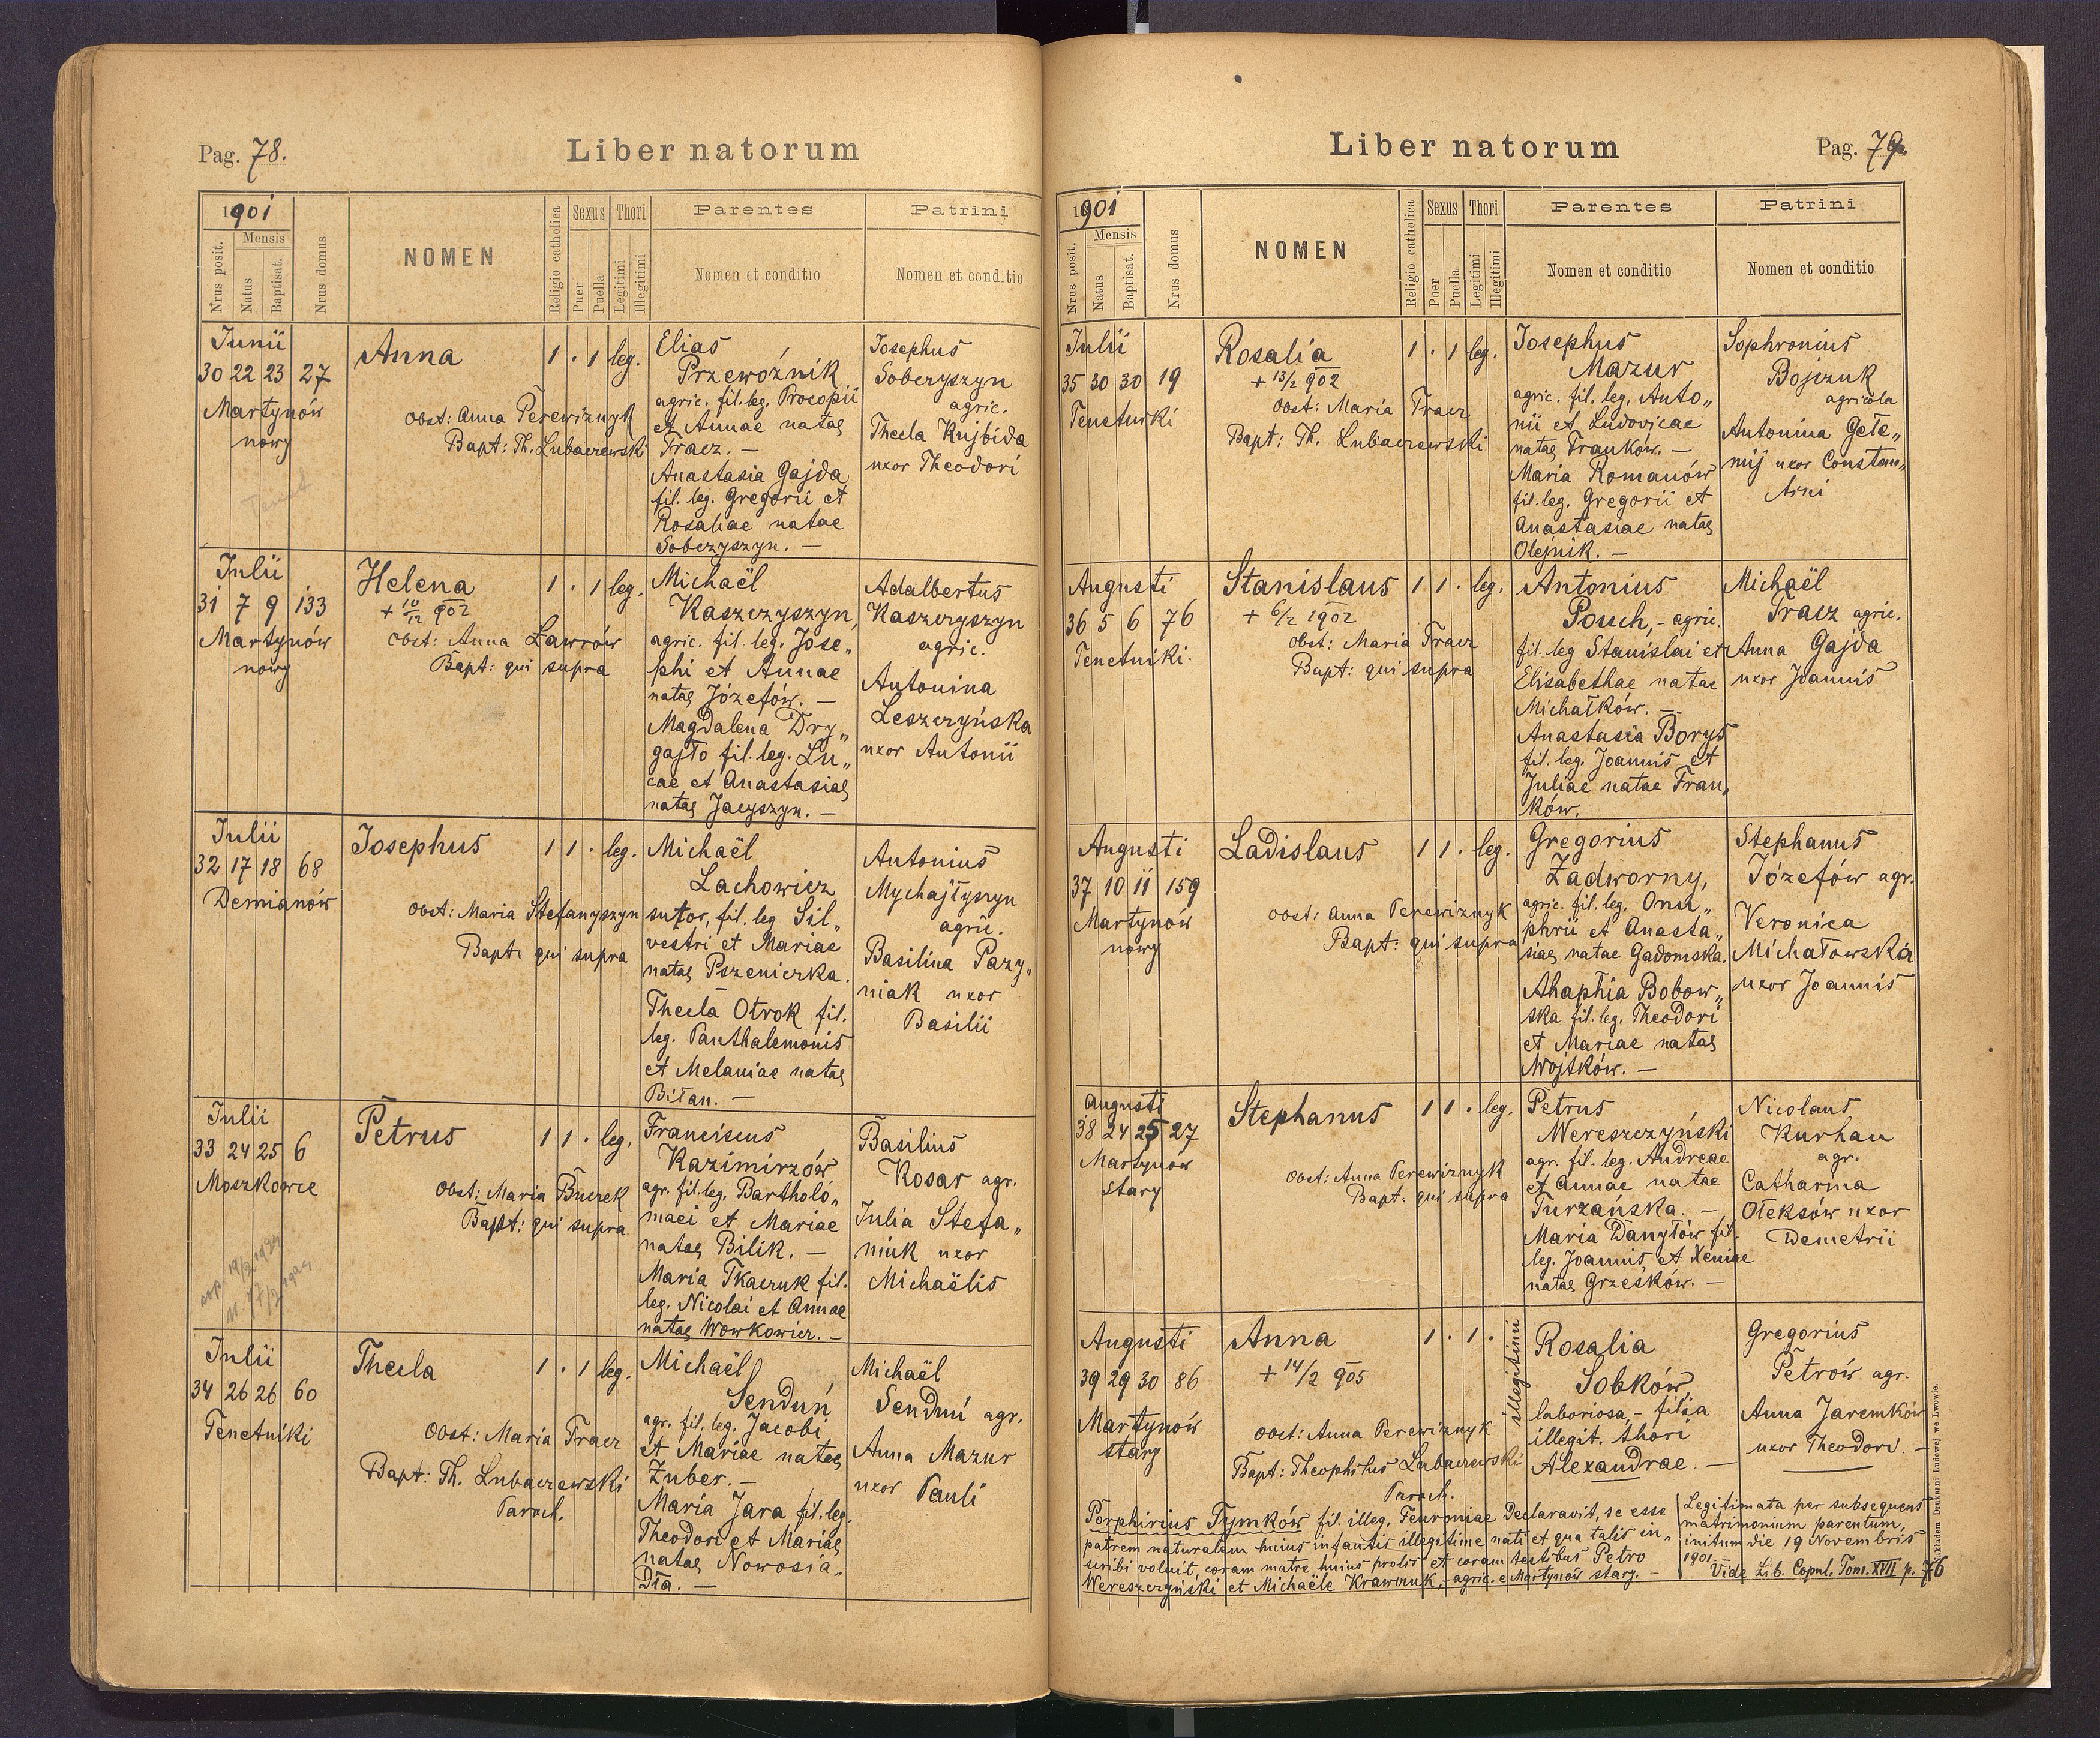 Pag. 78.
Liber natorum
1901
Nrus posit.
Mensis
Natus
Baptisat.
Nrus domus
NOMEN
Religio catholica
Sexus
Puer
Puella
Thori
Legitimi
Illegitimi
Parentes
Nomen et conditio
Patrini
Nomen et conditio
Junii
30 22 23 27
Martynów
nowy
Anna
Obst: Anna Perewiznyk
Bapt: Th. Lubaczewski
1 . 1 leg.
Elias
Przewoźnik
agric. fil. leg. Procopii
et Annae natae
Tracz. —
Anastasia Gajda
fil. leg. Gregorii et
Rosaliae natae
Sobczyszyn. —
Josephus
Sobczyszyn
agric.
Thecla Kujbida
uxor Theodori
Julii
31 7 9 133
Martynów
nowy
Helena
+ 10/12 902
Obst: Anna Ławrów
Bapt: qui supra
1 . 1 leg.
Michaël
Kaszczyszyn,
agric. fil. leg. Jose„
phi et Annae
natae Józefów. —
Magdalena Dry„
gajło fil. leg. Lu„
cae et Anastasiae
natae Jacyszyn. —
Adalbertus
Kaszczyszyn
agric.
Antonina
Leszczyńska
uxor Antonii
Julii
32 17 18 68
Demianów
Josephus
Obst: Maria Stefanyszyn
Bapt: qui supra
1 1 . leg.
Michaël
Lachowicz
sutor, fil. leg Sil„
vestri et Mariae
natae Pszeniczka.
Thecla Otrok fil.
leg. Panthalemonis
et Melaniae natae
Biłan. —
Antonius
Mychajłyszyn
agric.
Basilina Pazy„
niak uxor
Basilii
Julii
33 24 25 6
Moszkowce
Petrus
Obst: Maria Buczek
Bapt: qui supra
1 1 . leg.
Franciscus
Kazimirzów
agr. fil. leg. Bartholo„
maei et Mariae
natae Bilik. —
Maria Tkaczuk fil.
leg. Nicolai et Annae
natae Wowkowicz. —
Basilius
Kosar agr.
Julia Stefa„
niuk uxor
Michaëlis
Julii
34 26 26 60
Tenetniki
Thecla
Obst: Maria Tracz
Bapt: Th. Lubaczewski
Paroch.
1 . 1 leg.
Michaël
Senduń
agr. fil. leg. Jacobi
et Mariae natae
Zuber. —
Maria Jara fil. leg.
Theodori et Mariae
natae Nowosia„
dła. —
Michaël
Senduń agr.
Anna Mazur
uxor Pauli
Liber natorum
Pag. 79.
1901
Nrus posit.
Mensis
Natus
Baptisat.
Nrus domus
NOMEN
Religio catholica
Sexus
Puer
Puella
Thori
Legitimi
Illegitimi
Parentes
Nomen et conditio
Patrini
Nomen et conditio
Julii
35 30 30 19
Tenetniki
Rosalia
+ 13/2 902
Obst: Maria Tracz
Bapt: Th. Lubaczewski
1 . 1 leg.
Josephus
Mazur
agric. fil. leg. Anto„
nii et Ludovicae
natae Franków. —
Maria Romanów
fil. leg. Gregorii et
Anastasiae natae
Olejnik. —
Sophronius
Bojczuk
agricola
Antonina Gete„
mij uxor Constan„
tini
Augusti
36 5 6 76
Tenetniki.
Stanislaus
+ 6/2 1902
Obst: Maria Tracz
Bapt: qui supra
1 1 . leg.
Antonius
Posuch, - agric.
fil. leg Stanislai et
Elisabethae natae
Michałków. —
Anastasia Borys
fil. leg. Joannis et
Juliae natae Fran„
ków.
Michaël
Tracz agric.
Anna Gajda
uxor Joannis
Augusti
37 10 11 159
Martynów
nowy
Ladislaus
Obst: Anna Perewiznyk
Bapt: qui supra
1 1 . leg.
Gregorius
Zadworny,
agric. fil. leg. Onu„
phrii et Anasta„
siae natae Gadomska.
Ahaphia Bobow„
ska fil. leg. Theodori
et Mariae natae
Wojtków. —
Stephanus
Józefów agr.
Veronica
Michałowska
uxor Joannis
Augusti
38 24 25 27
Martynów
stary
Stephanus
Obst: Anna Perewiznyk
Bapt: qui supra
1 1 . leg.
Petrus
Wereszczyński
agr. fil. leg. Andreae
et Annae natae
Turzańska. —
Maria Danyłów fil.
leg. Joannis et Xeniae
natae Grześków. —
Nicolaus
Kurhan
agr.
Catharina
Ołeksów uxor
Demetrii
Augusti
39 29 30 86
Martynów
stary
Anna
+ 14/2 905
Obst: Anna Perewiznyk
Bapt: Theophilus Lubaczewski
Paroch.
1 . 1 .
illegitimi
Rosalia
Sobków,
laboriosa, - filia
illegit. thori
Alexandrae. —
Gregorius
Petrów agr.
Anna Jaremków
uxor Theodori. —
Porphirius Tymków fil. illeg. Feurmiae Declaravit, se esse
patrem naturalem huius infantis illegitime nati et qua talis in„
scribi voluit, coram matre huius prolis et coram testibus Petro
Wereszczyński et Michaële Krawczuk, - agric. e Martynów stary. —
Legitimata per subsequens
matrimonium parentum,
initum die 19 Novembris
1901.
Vide Lib. Copul. Tom. XVII p. 76
Nakładem Drukarni Ludowej we Lwowie.